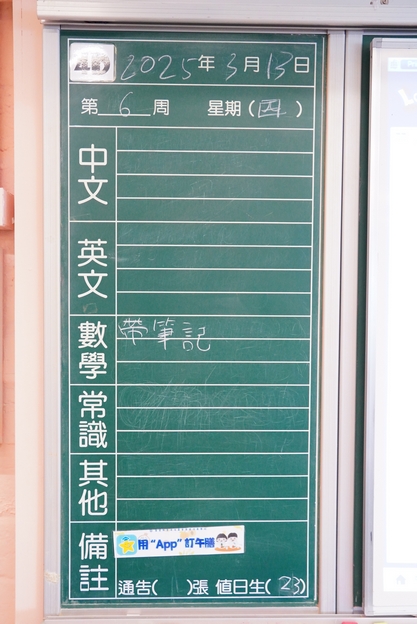 2025年3月13日
第6周 星期(四)
中文
英文
數學 帶筆記
常識
其他
備註
用"App"訂午膳
通告( )張 值日生(23)